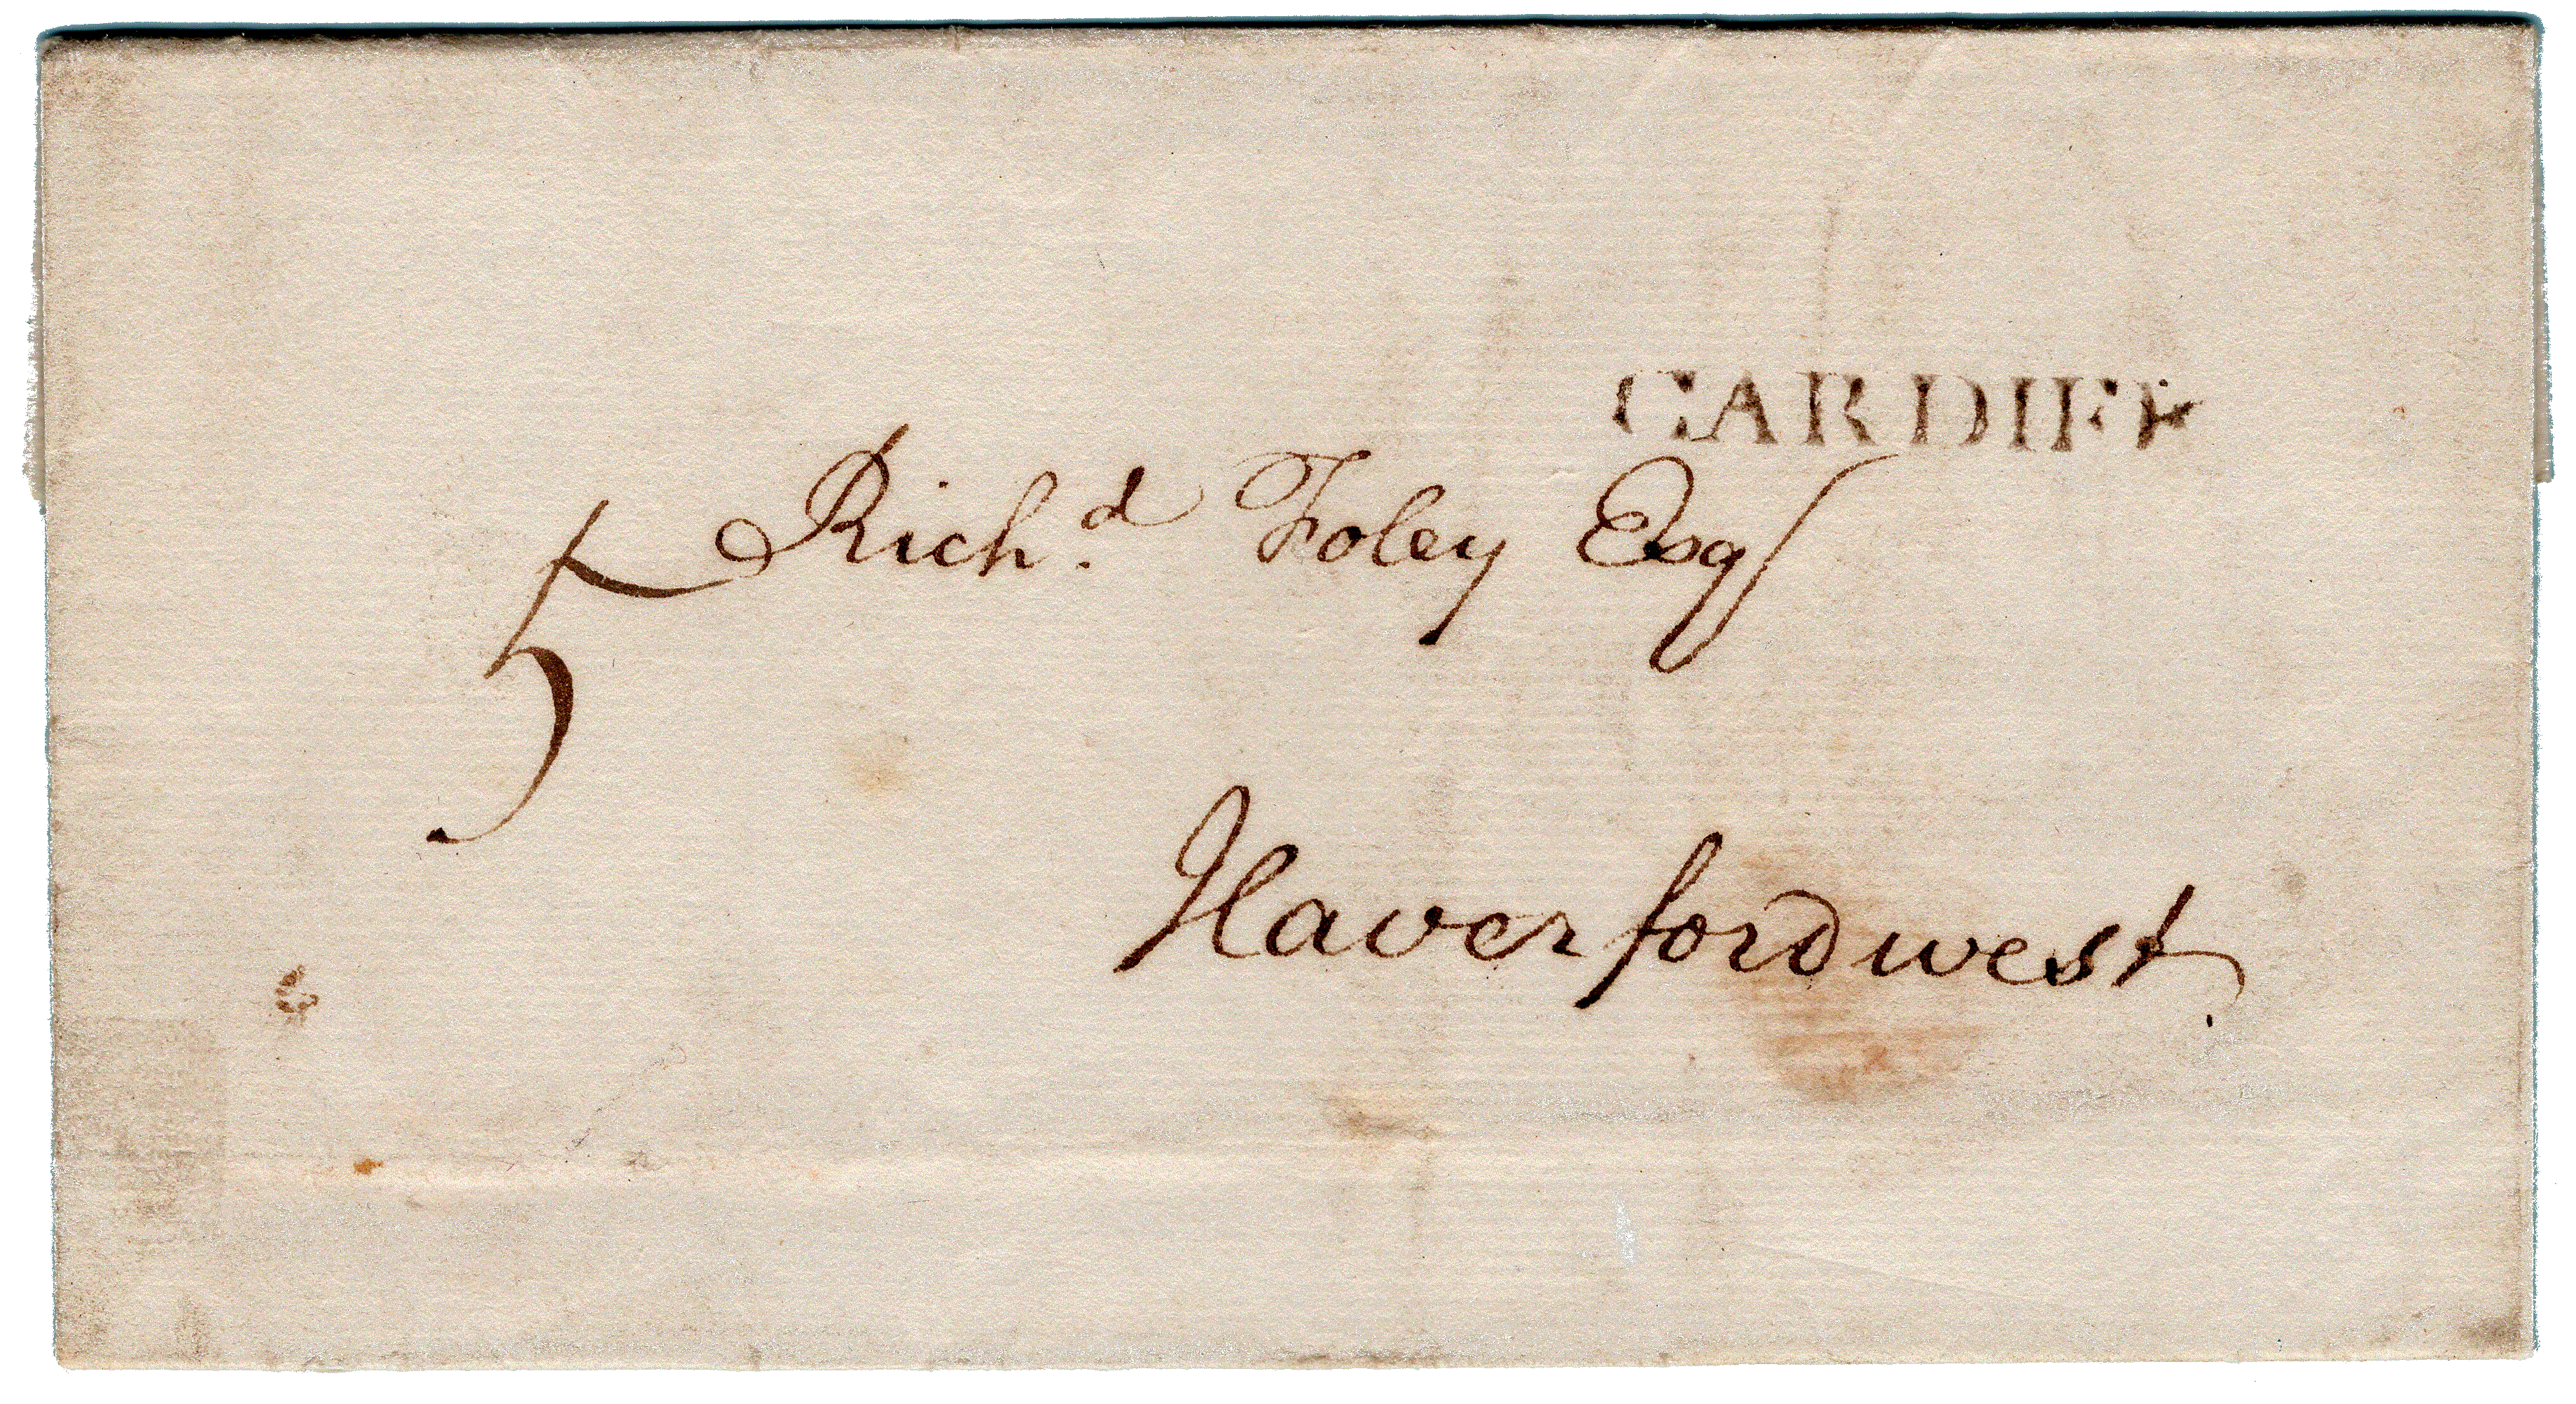 CARDIFF
Rich.d Foley Esq
5
Haverfordwest